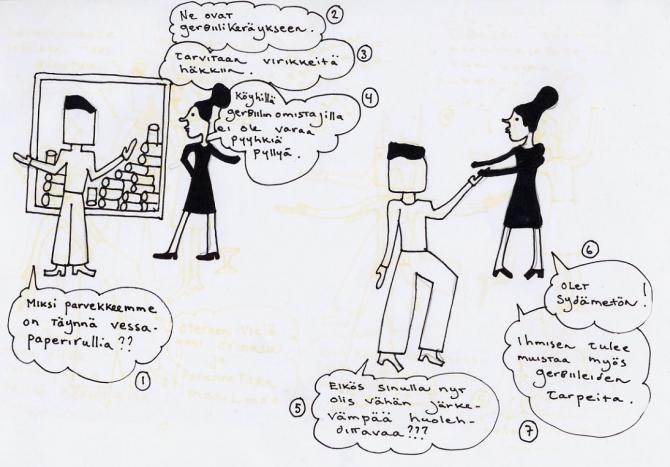 Miksi parvekkeemme
on täynnä vessa-
paperirullia??
1
2
Ne ovat
gerbiilikeräykseen.
3
Tarvitaan virikkeitä
häkkiin.
4
Köyhillä
gerbiilin omistajilla
ei ole varaa
pyyhkiä
pyllyä.
5
Eikös sinulla nyt
olis vähän järke-
vämpää huoleh-
dittavaa???
6
Olet
sydämetön!
7
Ihmisen tulee
muistaa myös
gerbiileiden
tarpeita.